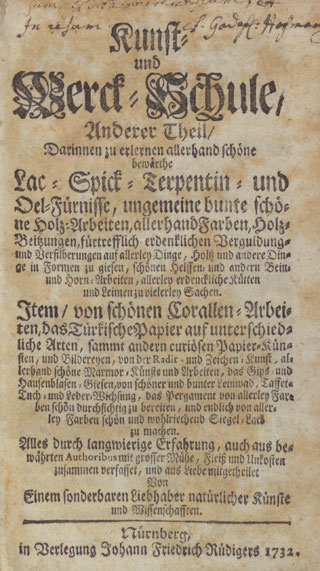 In usum
Kunst-
und
Werck-Schule/
Anderer Theil/
Darinnen zu erlernen allerhand schöne
bewärthe
Lac- Spick- Terpentin- und
Oel-Fürnisse, ungemeine bunte schö-
ne Holz-Arbeiten, allerhand Farben, Holz-
Beitzungen, fürtrefflich-erdenklichen Verguldung-
und Versilberungen auf allerley Dinge, Holtz und andere Din-
ge in Formen zu giesen, schönen Helffen- und andern Bein-
und Horn-Arbeiten, allerley erdenckliche Kütten
und Leimen zu vielerley Sachen.
Item/ von schönen Corallen-Arbei-
ten, das Türkische Papier auf unterschied-
liche Arten, sammt andern curiösen Papier-Kün-
sten, und Bildereyen, von der Radir- und Zeichen-Kunst, al-
lerhand schöne Marmor-Künste und Arbeiten, das Gips- und
Hausenblasen-Giesen, von schöner und bunter Leinwad, Taffet-
Tuch- und Leder-Wichsung, das Pergament von allerley Far-
ben schön durchsichtig zu bereiten, und endlich von aller-
ley Farben schön und wohlriechend Siegel-Lack
zu machen.
Alles durch langwierige Erfahrung, auch aus be-
währten Authoribus mit grosser Mühe, Fleiß und Unkosten
zusammen verfasset, und aus Liebe mitgetheilet
Von
Einem sonderbaren Liebhaber natürlicher Künste
und Wissenschafften.
Nürnberg,
in Verlegung Johann Friedrich Rüdigers 1732.